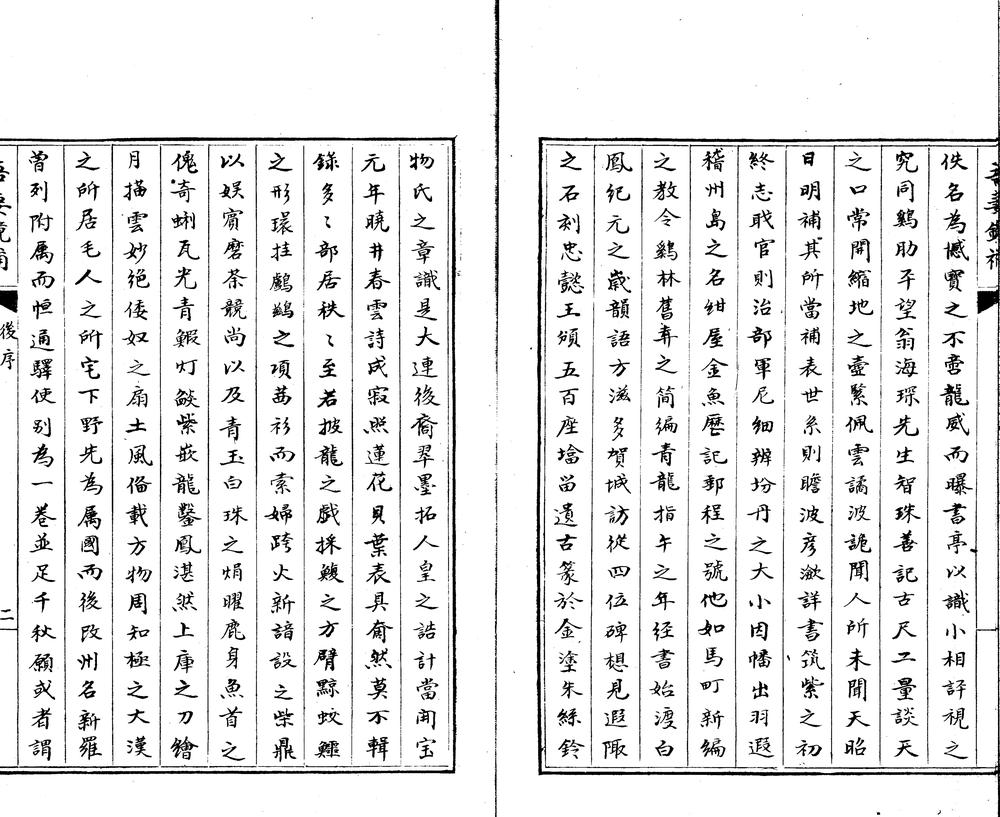 佚名為憾寶之不啻龍威而曝書亭以識小相評視之
究同鷄助平望翁海琛先生智珠善記古尺工量談天
之口常開縮地之壺繫佩雲譎波詭聞人所未聞天昭
日明補其所當補表世系則瞻波彦瀲詳書筑紫之初
終志職官則治部軍尼細辨坋丹之大小因幡出羽遐
稽州島之名紺屋金魚歷記郵程之號他如馬町新編
之教令鷄林舊弆之簡編青龍指午之年经書始渡白
鳳紀元之歲韻語方滋多賀城訪從四位碑想見遐陬
之石刻忠懿王頒五百座墖留遺古篆於金塗朱絲鈴
物氏之章識是大連後裔翠墨拓人皇之誥計當開宝
元年曉井春雲詩成寂照蓮花貝葉表具奝然莫不輯
錄多〻部居秩〻至若披龍之戲採鰒之方臂黥蚊鱷
之形環挂鸕鷀之項茜衫而索婦跨火新諳設之柴鼎
以娱賓磨茶競尚以及青玉白珠之焆曜鹿身魚首之
傀奇蜊瓦光青蝦灯燄紫嵌龍鑿鳳湛然上庫之刀繪
月描雲妙絕倭奴之扇土風俻載方物周知極之大漢
之所居毛人之所宅下野先為属國而後改州名新羅
曾列附属而恒通驛使别為一卷並足千秋願或者謂
後序
二